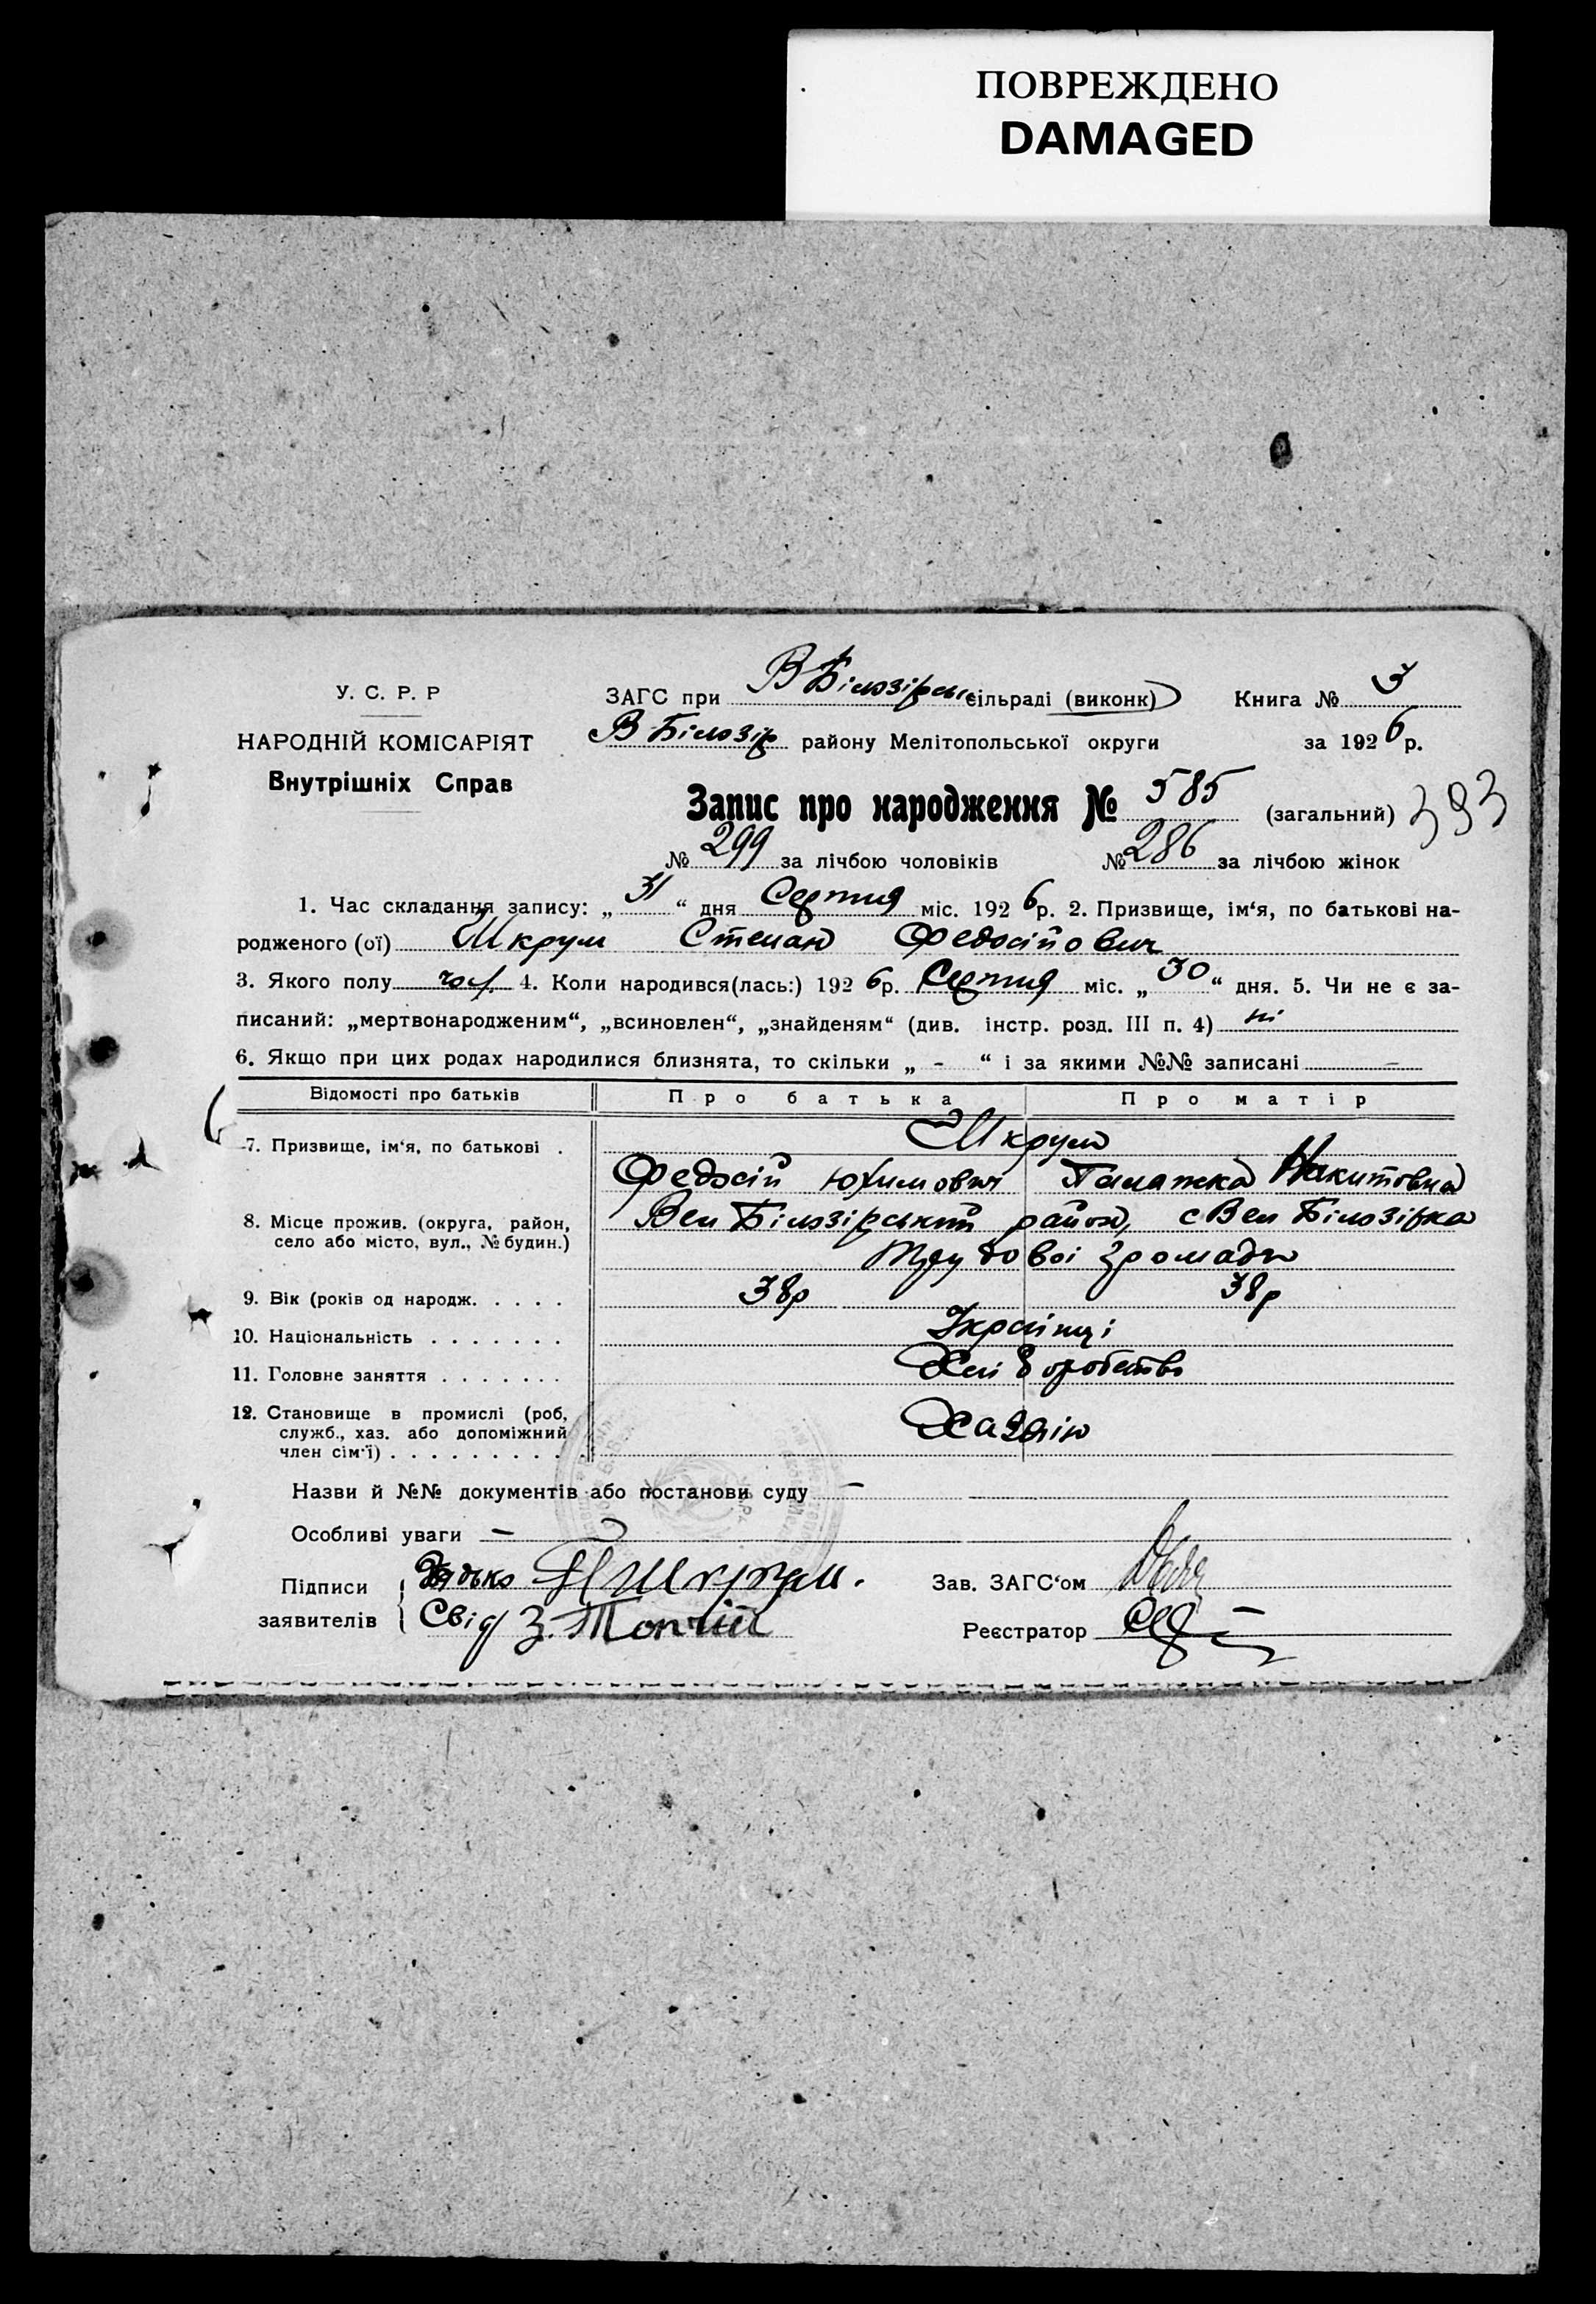 ПОВРЕЖДЕНО
DAMAGED
У. С. Р. Р
НАРОДНІЙ КОМІСАРІЯТ
Внутрішніх Справ
ЗАГС при В Білозірськ сільраді (виконк) Книга № 3
В Білозір району Мелітопольської округи за 1926 р.
Запис про народження № 585 (загальний) 393
№ 299 за лічбою чоловіків № 286 за лічбою жінок
1. Час складання запису: „31“ дня Серпня міс. 1926 р. 2. Призвище, ім‘я, по батькові на-
родженого (ої) Шкрум Степан Федосійович
3. Якого полу чол. 4. Коли народився(лась:) 1926 р. Серпня міс. „30“ дня. 5. Чи не є за-
писаний: „мертвонародженим“, „всиновлен“, „знайденям“ (див. інстр. розд. III п. 4) ні
6. Якщо при цих родах народилися близнята, то скільки „ - “ і за якими №№ записані -
Відомості про батьків Про батька Про матір
7. Призвище, ім‘я, по батькові . Шкрум
Федосій Юхимович Палажка Никитовна
8. Місце прожив. (округа, район, село або місто, вул., № будин.) Вел Білозірський район, с Вел Білозірка
Трудової громади
9. Вік (років од народж. . . . . 38р 38р
10. Національність . . . . . . . Українці
11. Головне заняття . . . . . . . Хліборобство
12. Становище в промислі (роб,
служб., хаз. або допоміжний
член сім‘ї) . . . . . . . . . . Хазяїн
Назви й №№ документів або постанови суду —
Особливі уваги —
Підписи заявителів Дядько Шкрум.
Свід З. Топчій
Зав. ЗАГС‘ом
Реєстратор